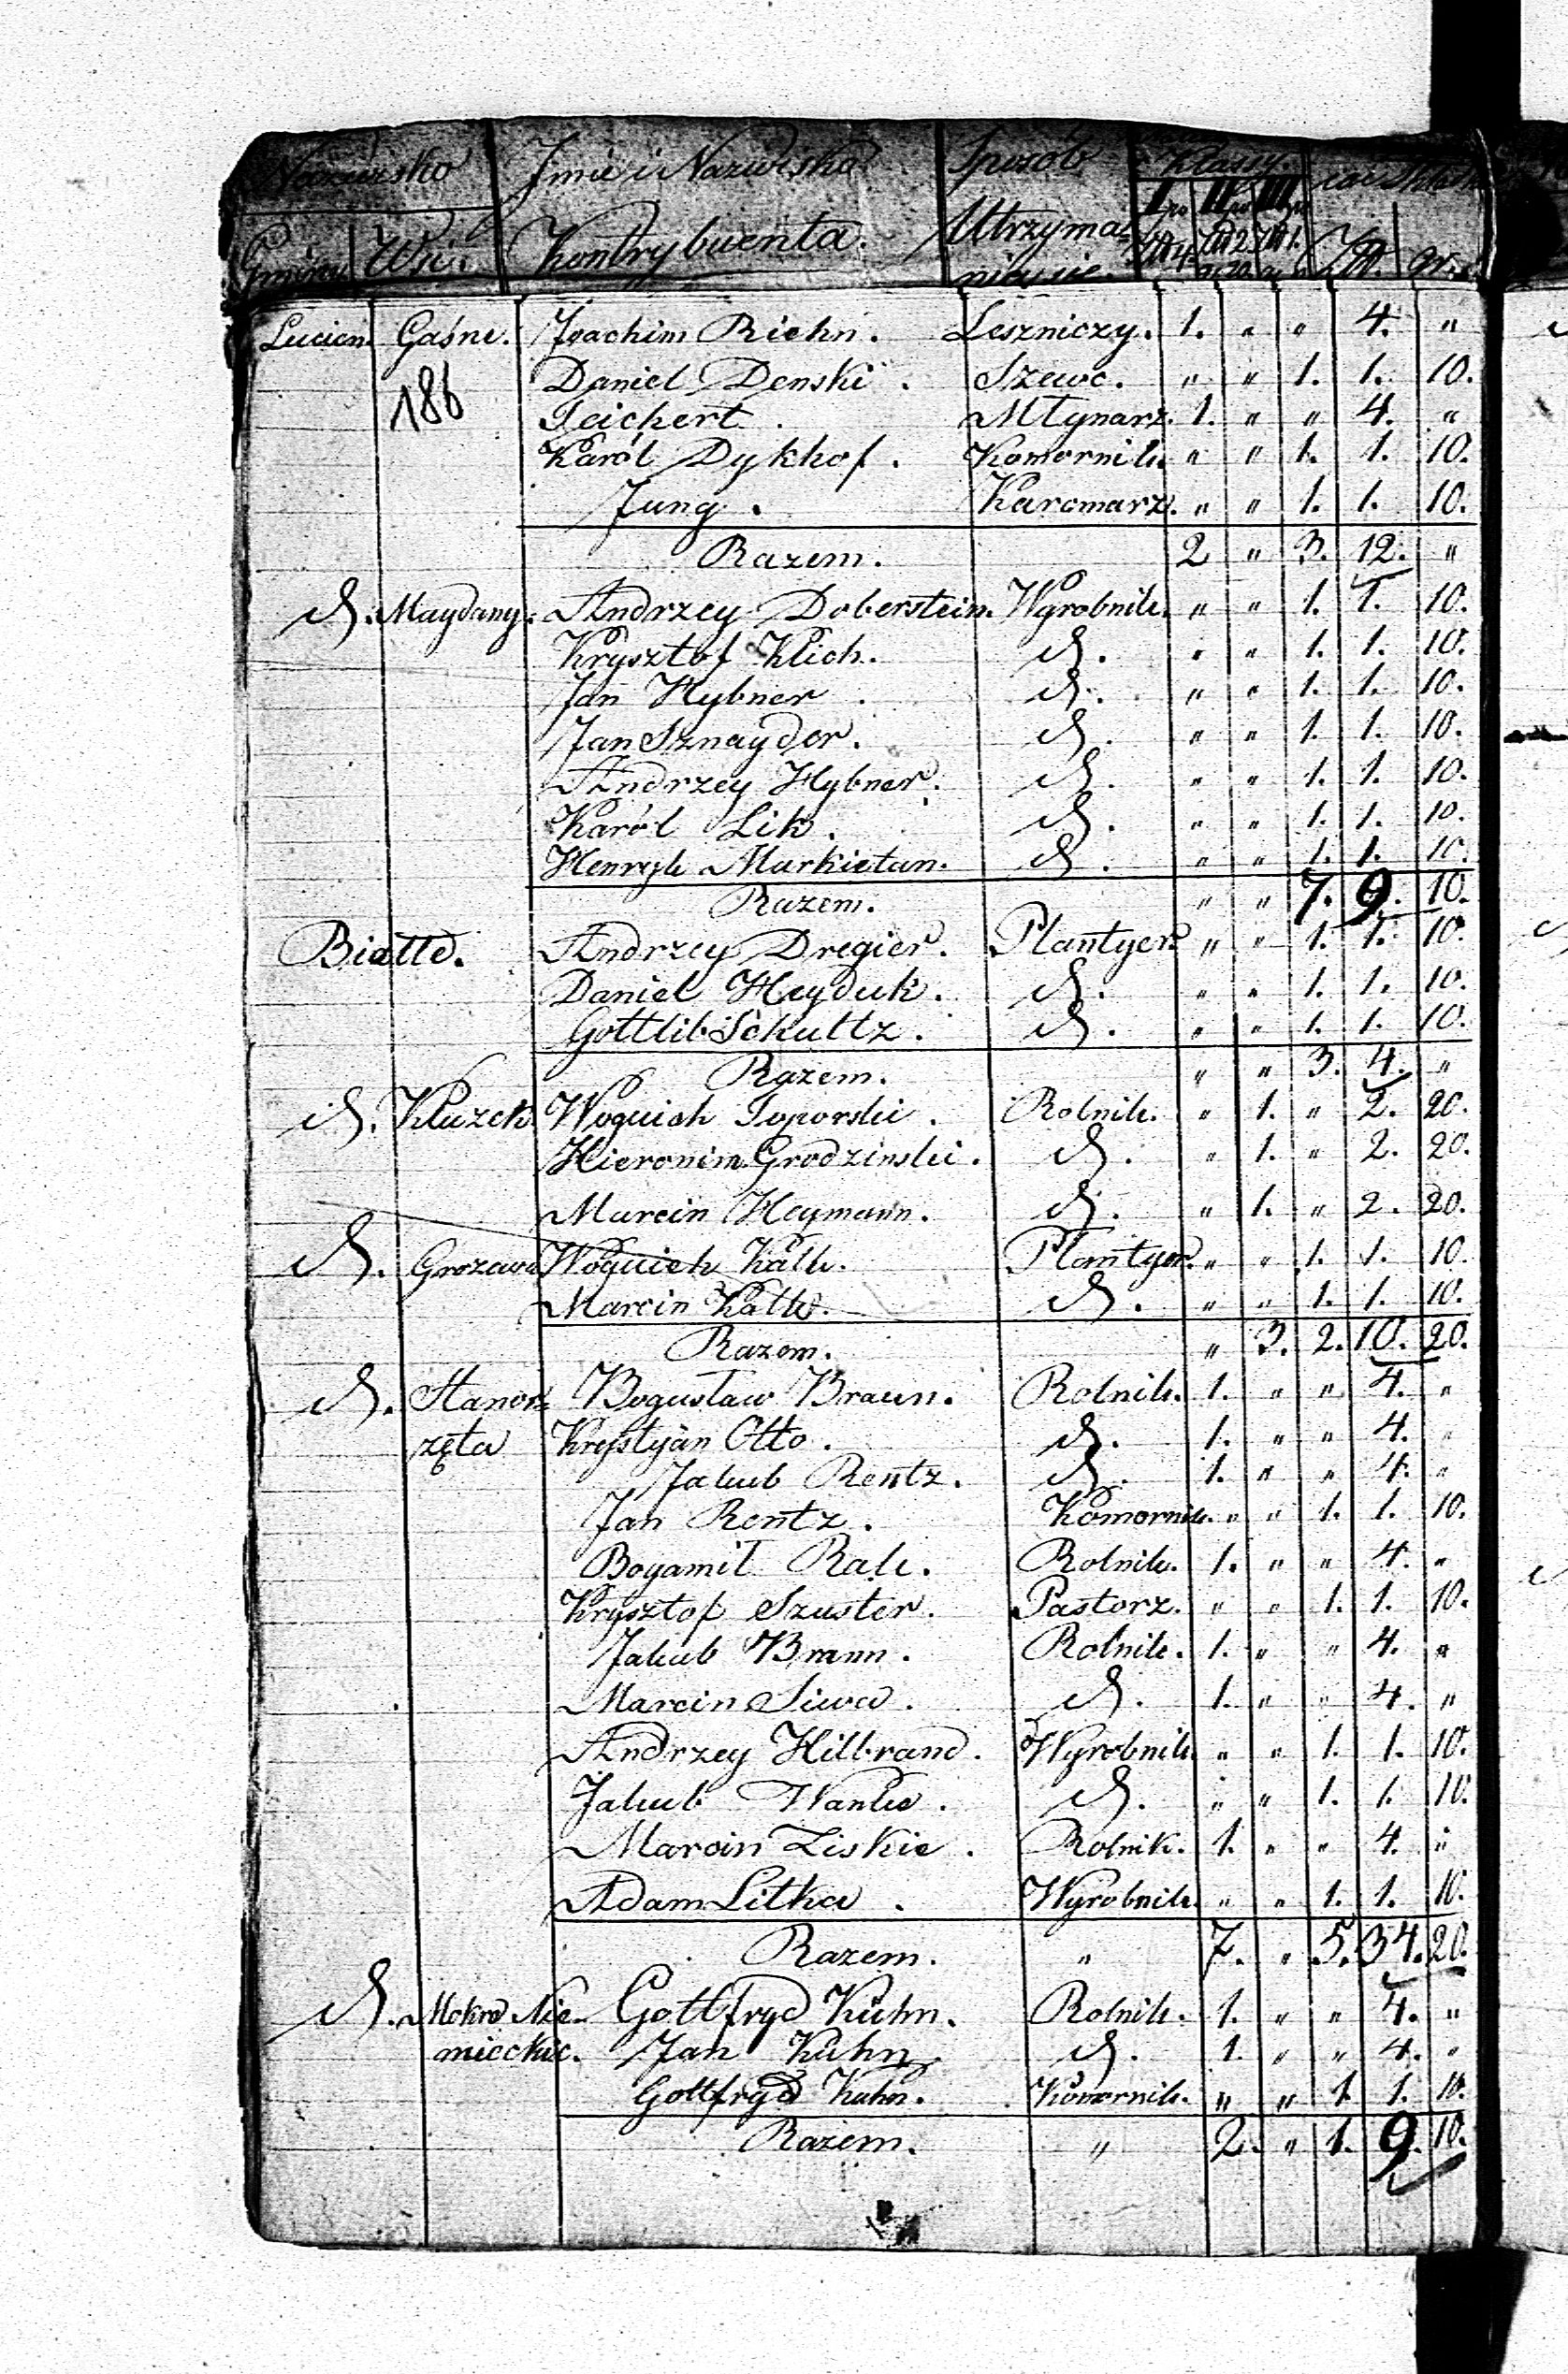 Nazwisko Jmie i Nazwiska Sposób Klassy.
Gminy Wsi. Kontrybuenta. Utrzyma- Złł. gr.
nia się.
Lucien. Gaśne. Joachim Riehn. Leszniczy. 1. " " 4. "
186 Daniel Denski. Szewc. " " 1. 1. 10.
Teichert. Młynarz. 1. " " 4. "
Karól Dykhof. Komornik. " " 1. 1. 10.
Jung. Karcmarz. " " 1. 1. 10.
Razem. 2 " 3. 12. "
d. Maydany. Andrzey Doberstein. Wyrobnik. " " 1. 1. 10.
Krysztof Klich. d. " " 1. 1. 10.
Jan Hybner. d. " " 1. 1. 10.
Jan Sznayder. d. " " 1. 1. 10.
Andrzey Hybner. d. " " 1. 1. 10.
Karól Lik. d. " " 1. 1. 10.
Henryk Markietan. d. " " 1. 1. 10.
Razem. " " 7. 9. 10.
Białłe. Andrzey Dregier. Plantyer. " " 1. 1. 10.
Daniel Heyduk. d. " " 1. 1. 10.
Gottlib Schultz. d. " " 1. 1. 10.
Razem. " " 3. 4. "
d. Kluzek Woyciech Toporski. Rolnik. " 1. " 2. 20.
Hieronim Grodzinski. d. " 1. " 2. 20.
Marcin Heymann. d. " 1. " 2. 20.
d. Woyciech Kalk. Plantyer. " " 1. 1. 10.
Marcin Kalk. d. " " 1. 1. 10.
Razem. " 3. 2. 10. 20.
d. Bogusław Braun. Rolnik. 1. " " 4. "
zęta Krystyan Otto. d. 1. " " 4. "
Jakub Rentz. d. 1. " " 4. "
Jan Rentz. Komornik. " " 1. 1. 10.
Bogamił Rak. Rolnik. 1. " " 4. "
Krysztof Szuster. Pastorz. " " 1. 1. 10.
Jakub Braun. Rolnik. 1. " " 4. "
Marcin Siwa. d. 1. " " 4. "
Andrzey Hilbrand. Wyrobnik. " " 1. 1. 10.
Jakub Wanke. d. " " 1. 1. 10.
Marcin Liskie. Rolnik. 1. " " 4. "
Adam Litka. Wyrobnik. " " 1. 1. 10.
Razem. " 7. " 5. 34. 20.
d. Mokre Nie- Gottfryd Kühn. Rolnik. 1. " " 4. "
mieckie. Jan Kühn. d. 1. " " 4. "
Gottfryd Kuhn. Komornik. " " 1. 1. 10.
Razem. " 2. " 1. 9. 10.